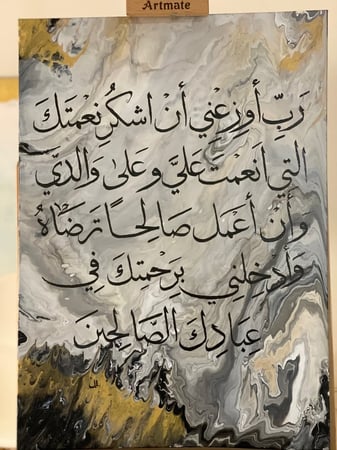 Artmate
رَبِّ أَوزِعْنِي أَنْ اشكُرَ نِعْمَتَكَ
التي انَعمْتَ عَليَّ وعَلىٰ وَالدَيَّ
وَأَنْ أَعْمَل صَالِحًا تَرضَاهُ
وَادخِلني بِرَحمَتِكَ فِي
عِبَادِكَ الصَّالِحِينَ